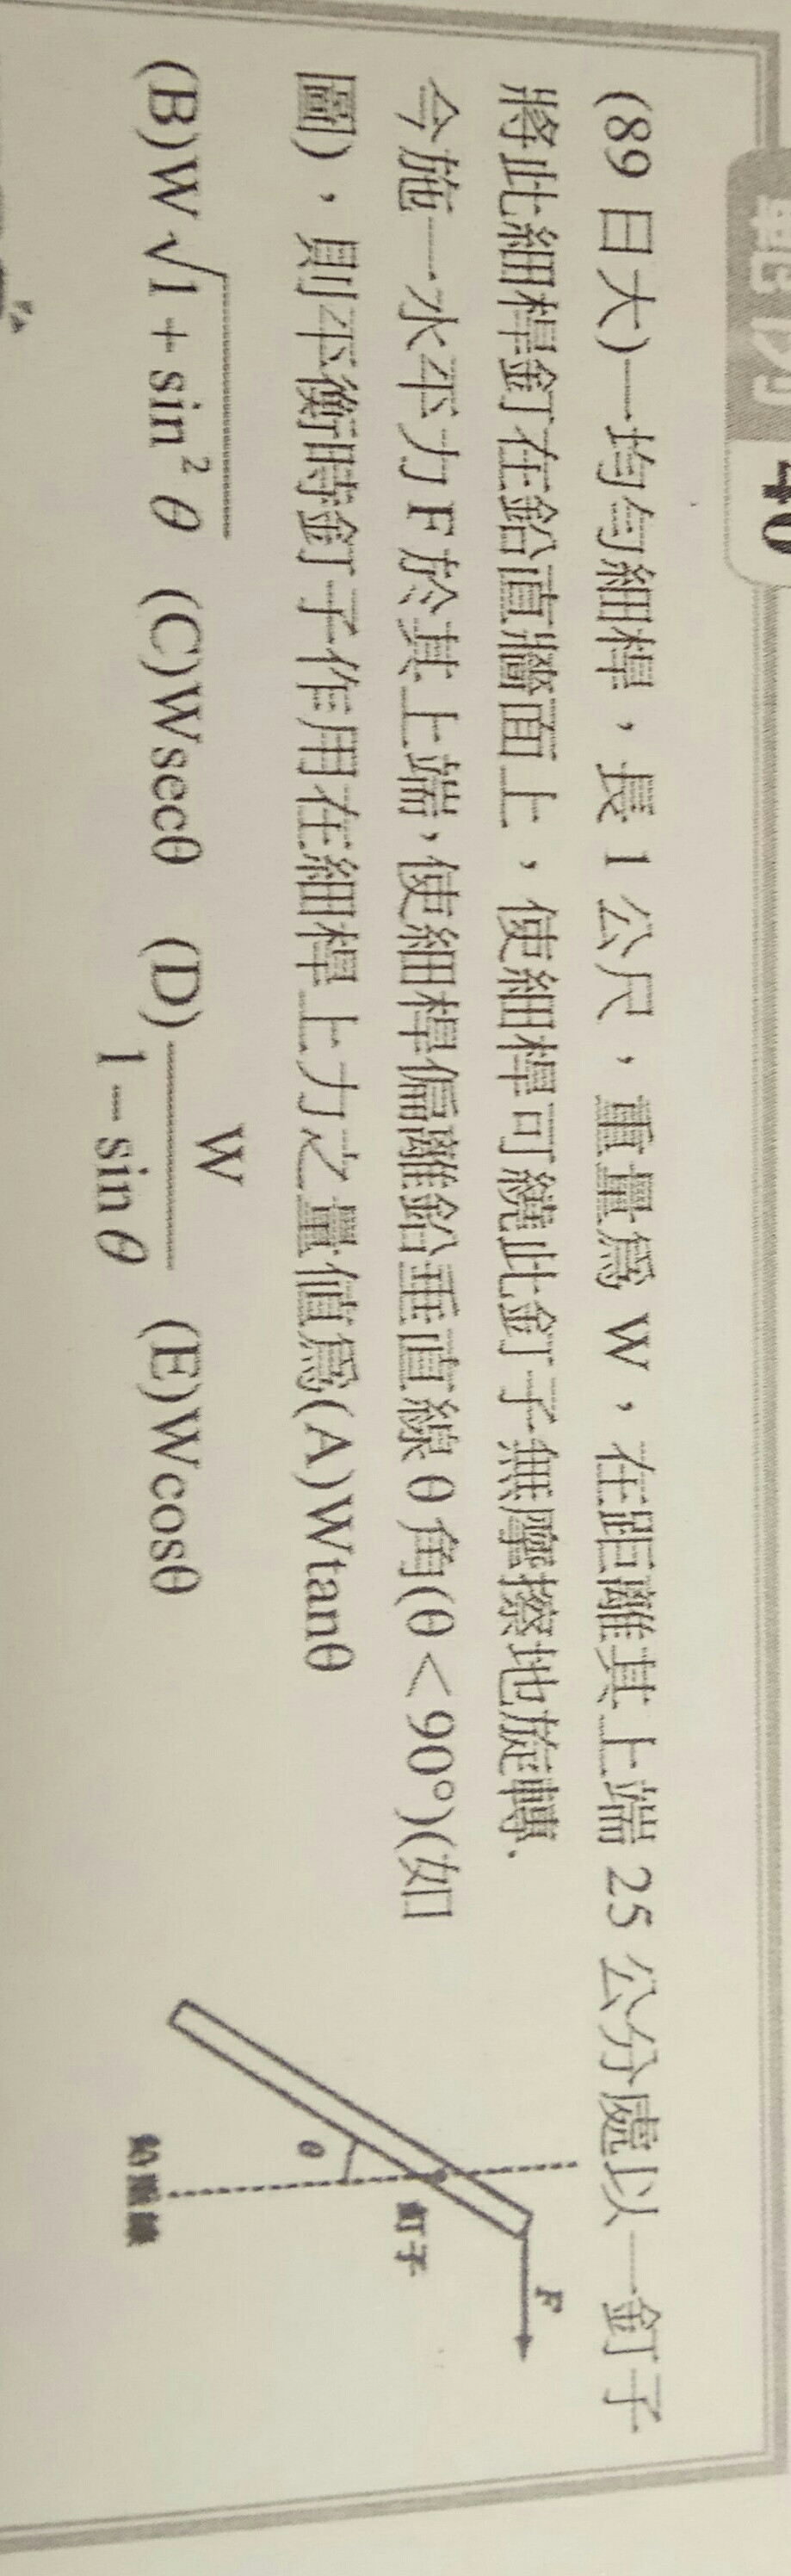 範例 40
(89 日大)一均勻細桿，長 1 公尺，重量為 W，在距離其上端 25 公分處以一釘子
將此細桿釘在鉛直牆面上，使細桿可繞此釘子無摩擦地旋轉.
今施一水平力 F 於其上端，使細桿偏離鉛垂直線 θ 角(θ < 90°)(如
圖)，則平衡時釘子作用在細桿上力之量值為(A)Wtanθ
(B)W√(1 + sin² θ) (C)Wsecθ (D) W/(1 − sin θ) (E)Wcosθ
F
釘子
θ
鉛垂線